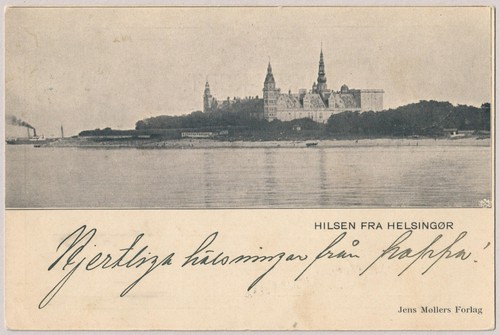 HILSEN FRA HELSINGØR
Hjertliga hälsningar från Pappa!
Jens Møllers Forlag